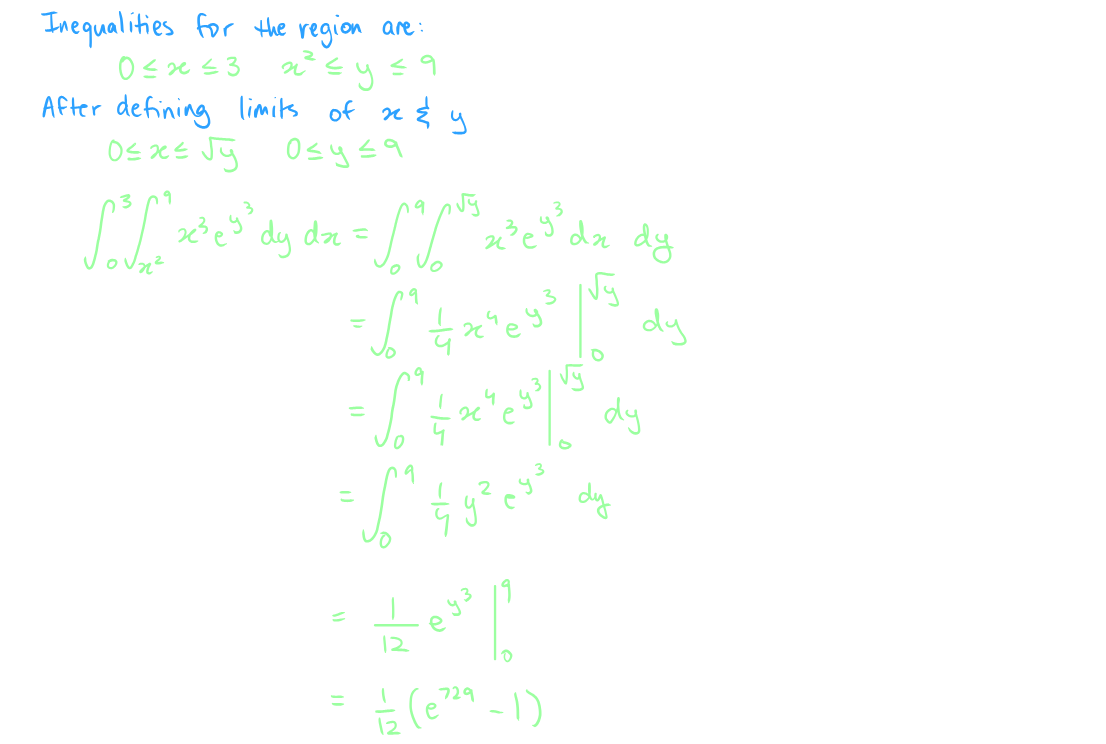 Inequalities for the region are:
0 ≤ x ≤ 3   x² ≤ y ≤ 9
After defining limits of x & y
0 ≤ x ≤ √y   0 ≤ y ≤ 9
∫₀³ ∫_{x²}^9 x³e^{y³} dy dx = ∫₀⁹ ∫₀^{√y} x³e^{y³} dx dy
= ∫₀⁹ 1/4 x⁴e^{y³} |₀^{√y} dy
= ∫₀⁹ 1/4 x⁴e^{y³} |₀^{√y} dy
= ∫₀⁹ 1/4 y² e^{y³} dy
= 1/12 e^{y³} |₀⁹
= 1/12 (e^{729} - 1)